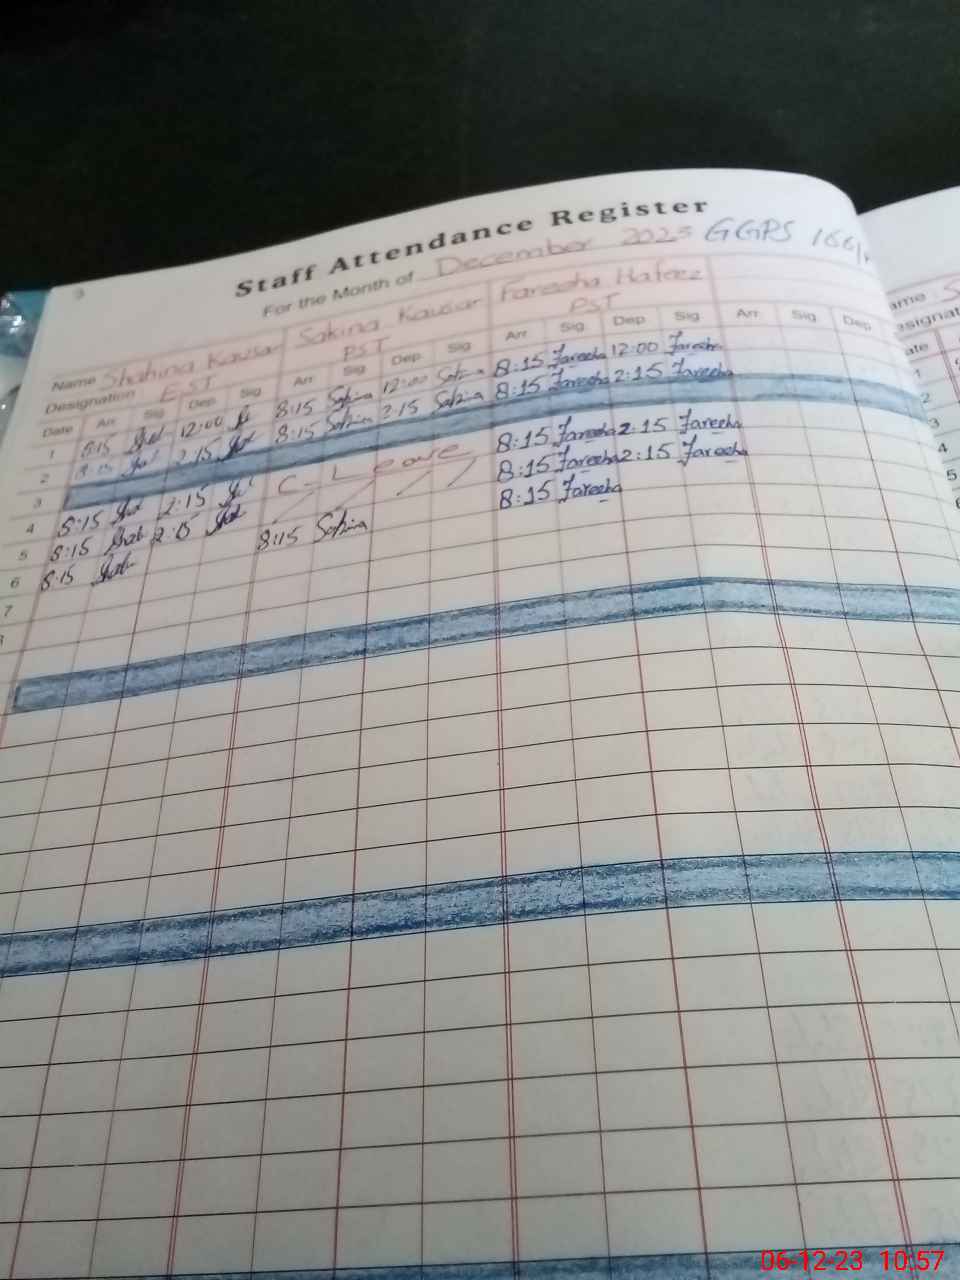 3
Staff Attendance Register
For the Month of December 2023 GGPS
Name Shahina Kausar Sakina Kausar Fareeha Hafeez
Designation EST PST PST
Date Arr Sig Dep Sig Arr Sig Dep Sig Arr Sig Dep Sig Arr Sig Dep
1 8:15 12:00 8:15 Sakina 12:00 Sakina 8:15 Fareeha 12:00 Fareeha
2 8:15 2:15 8:15 Sakina 2:15 Sakina 8:15 Fareeha 2:15 Fareeha
3
4 8:15 2:15 C. Leave 8:15 Fareeha 2:15 Fareeha
5 8:15 8:15 Fareeha 2:15 Fareeha
6 8:15 8:15 Sakina 8:15 Fareeha
7
8
ame
esignat
ate
1
2
3
4
5
6
06-12-23 10:57